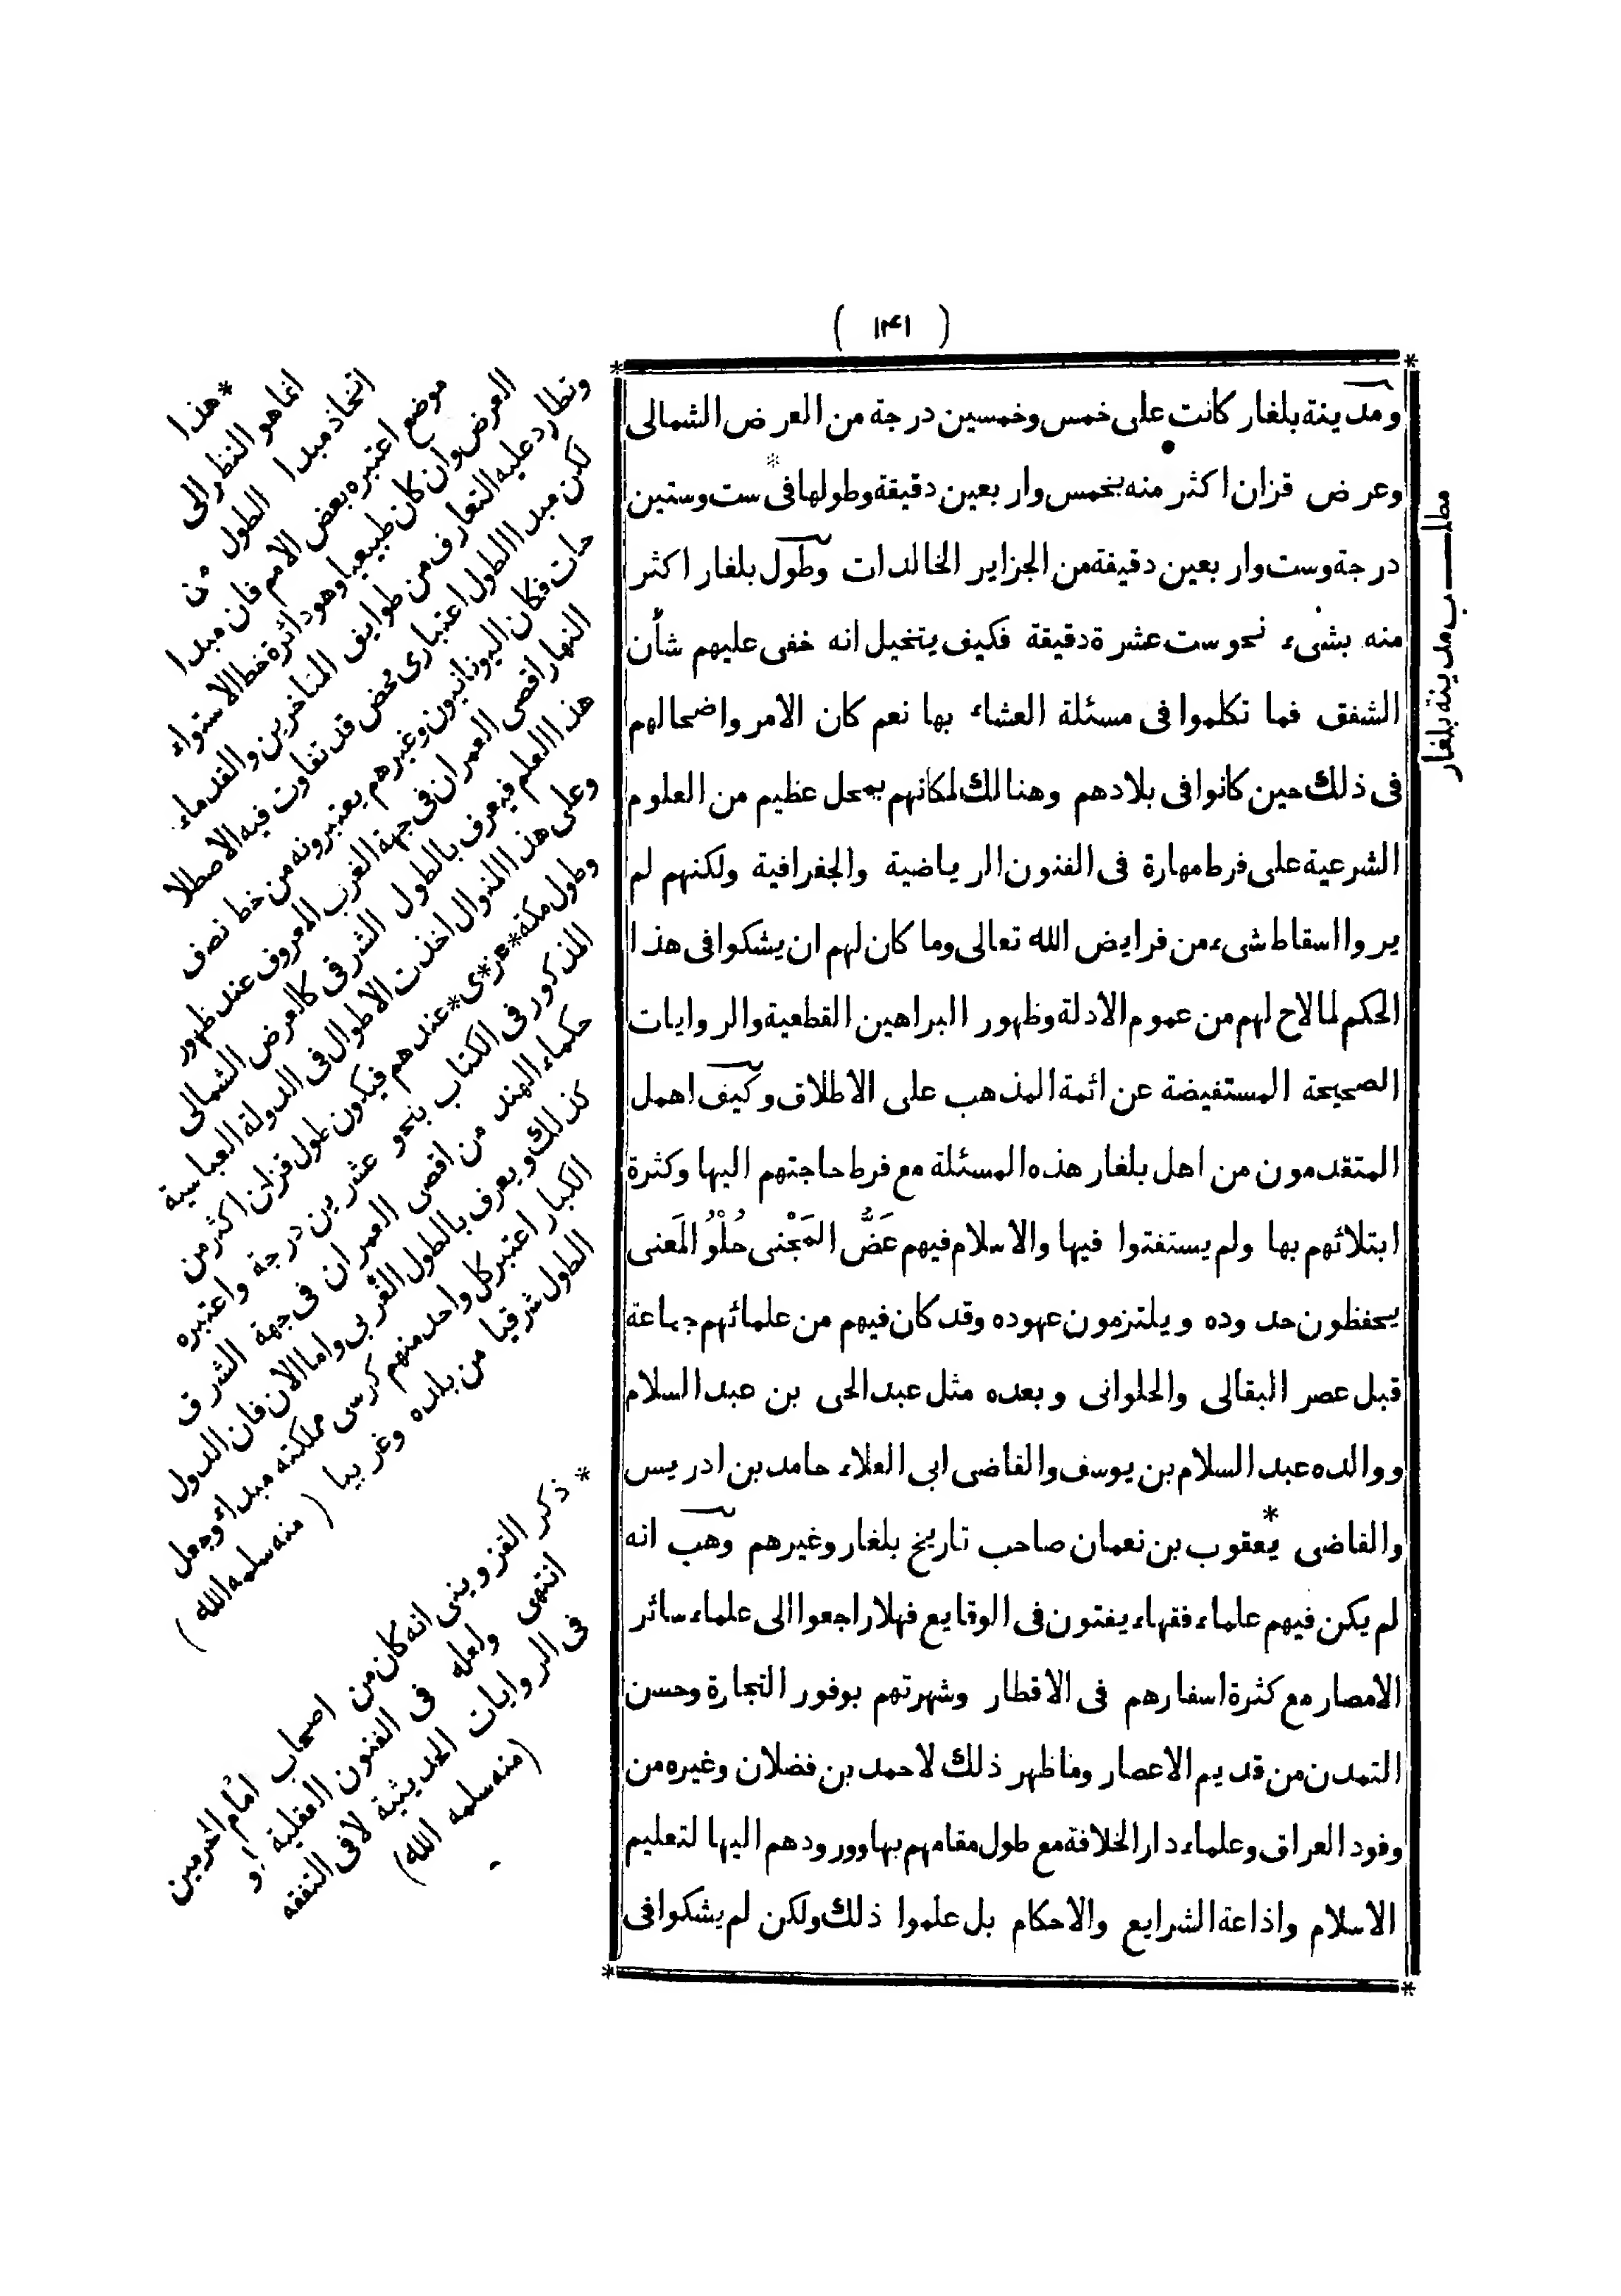 ( ۱۴۱ )
ومدينة بلغار كانت على خمس وخمسين درجة من العرض الشمالى
وعرض قزان اكثر منه بخمس واربعين دقيقة وطولها* فى ست وستين
درجة وست واربعين دقيقة من الجزاير الخالدات وطول بلغار اكثر
منه بشىء نحو ست عشرة دقيقة فكيف يتخيل انه خفى عليهم شأن
الشفق فما تكلموا فى مسئلة العشاء بها نعم كان الامر واضحا لهم
فى ذلك حين كانوا فى بلادهم وهنالك لمكانهم بمحل عظيم من العلوم
الشرعية على فرط مهارة فى الفنون الرياضية والجغرافية ولكنهم لم
يروا اسقاط شىء من فرايض الله تعالى وما كان لهم ان يشكوا فى هذا
الحكم لما لاح لهم من عموم الادلة وظهور البراهين القطعية والروايات
الصحيحة المستفيضة عن ائمة المذهب على الاطلاق وكيف اهمل
المتقدمون من اهل بلغار هذه المسئلة مع فرط حاجتهم اليها وكثرة
ابتلائهم بها ولم يستفتوا فيها والاسلام فيهم غَضُّ المَجْنى حُلْوُ المَعنى
يحفظون حدوده ويلتزمون عهوده وقد كان فيهم من علمائهم جماعة
قبل عصر البقالى والحلوانى وبعده مثل عبد الحى بن عبد السلام
ووالده عبد السلام بن يوسف والقاضى ابى العلاء حامد بن ادريس
والقاضى *يعقوب بن نعمان صاحب تاريخ بلغار وغيرهم وهب انه
لم يكن فيهم علماء فقهاء يفتون فى الوقايع فهلا راجعوا الى علماء سائر
الامصار مع كثرة اسفارهم فى الاقطار وشهرتهم بوفور التجارة وحسن
التمدن من قديم الاعصار وما ظهر ذلك لاحمد بن فضلان وغيره من
وفود العراق وعلماء دار الخلافة مع طول مقامهم بها وورودهم اليها لتعليم
الاسلام واذاعة الشرايع والاحكام بل علموا ذلك ولكن لم يشكوا فى
مطلب مدينة بلغار
*هذا
انما هو النظر الى
اتخاذ مبدا الطول من
موضع اعتبره بعض الامم فان مبدا
العرض وان كان طبيعيا وهو دائرة خط الاستواء
وتطارد عليه التعارف من طوايف المتاخرين والقدماء
لكن مبدا الطول اعتبارى محض قد تفاوت فيه الاصطلا
حات فكان اليونانيون وغيرهم يعتبرونه من خط نصف
النهار اقصى العمران فى جهة الغرب المعروف عند ظهور
هذا العلم فيعرف بالطول الشرقى كالعرض الشمالى
وعلى هذا المنوال اخذت الاطوال فى الدولة العباسية
وطول مكة *عز*ى* عندهم فيكون طول قزان اكثر من
المذكور فى الكتاب بنحو عشرين درجة واعتبره
حكماء الهند من اقصى العمران فى جهة الشرق
كذلك ويعرف بالطول الغربى واما الان فان الدول
الكبار اعتبر كل واحد منهم كرسى مملكته مبداء وجعل
الطول شرقيا من بلده وغربيا (منه سلمه الله)
* ذكر القزوينى انه كان من اصحاب امام الحرمين
انتهى ولعله فى الفنون العقلية او
فى الروايات الحديثية لا فى التفقه
(منه سلمه الله)